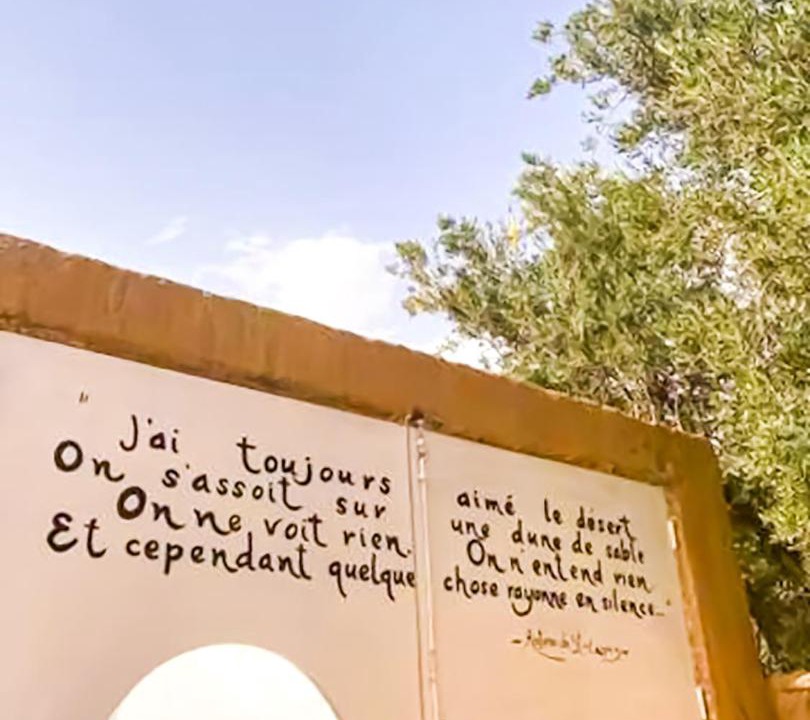 "J'ai toujours aimé le désert
On s'assoit sur une dune de sable
On ne voit rien. On n'entend rien
Et cependant quelque chose rayonne en silence..."
- Antoine de St-Exupéry -